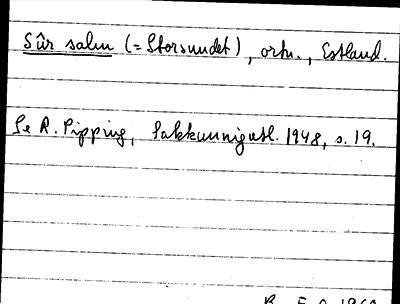 Sûr salm (= Storsundet), ortn., Estland.
Se R. Pipping, Sakkunnigutl. 1948, s. 19.